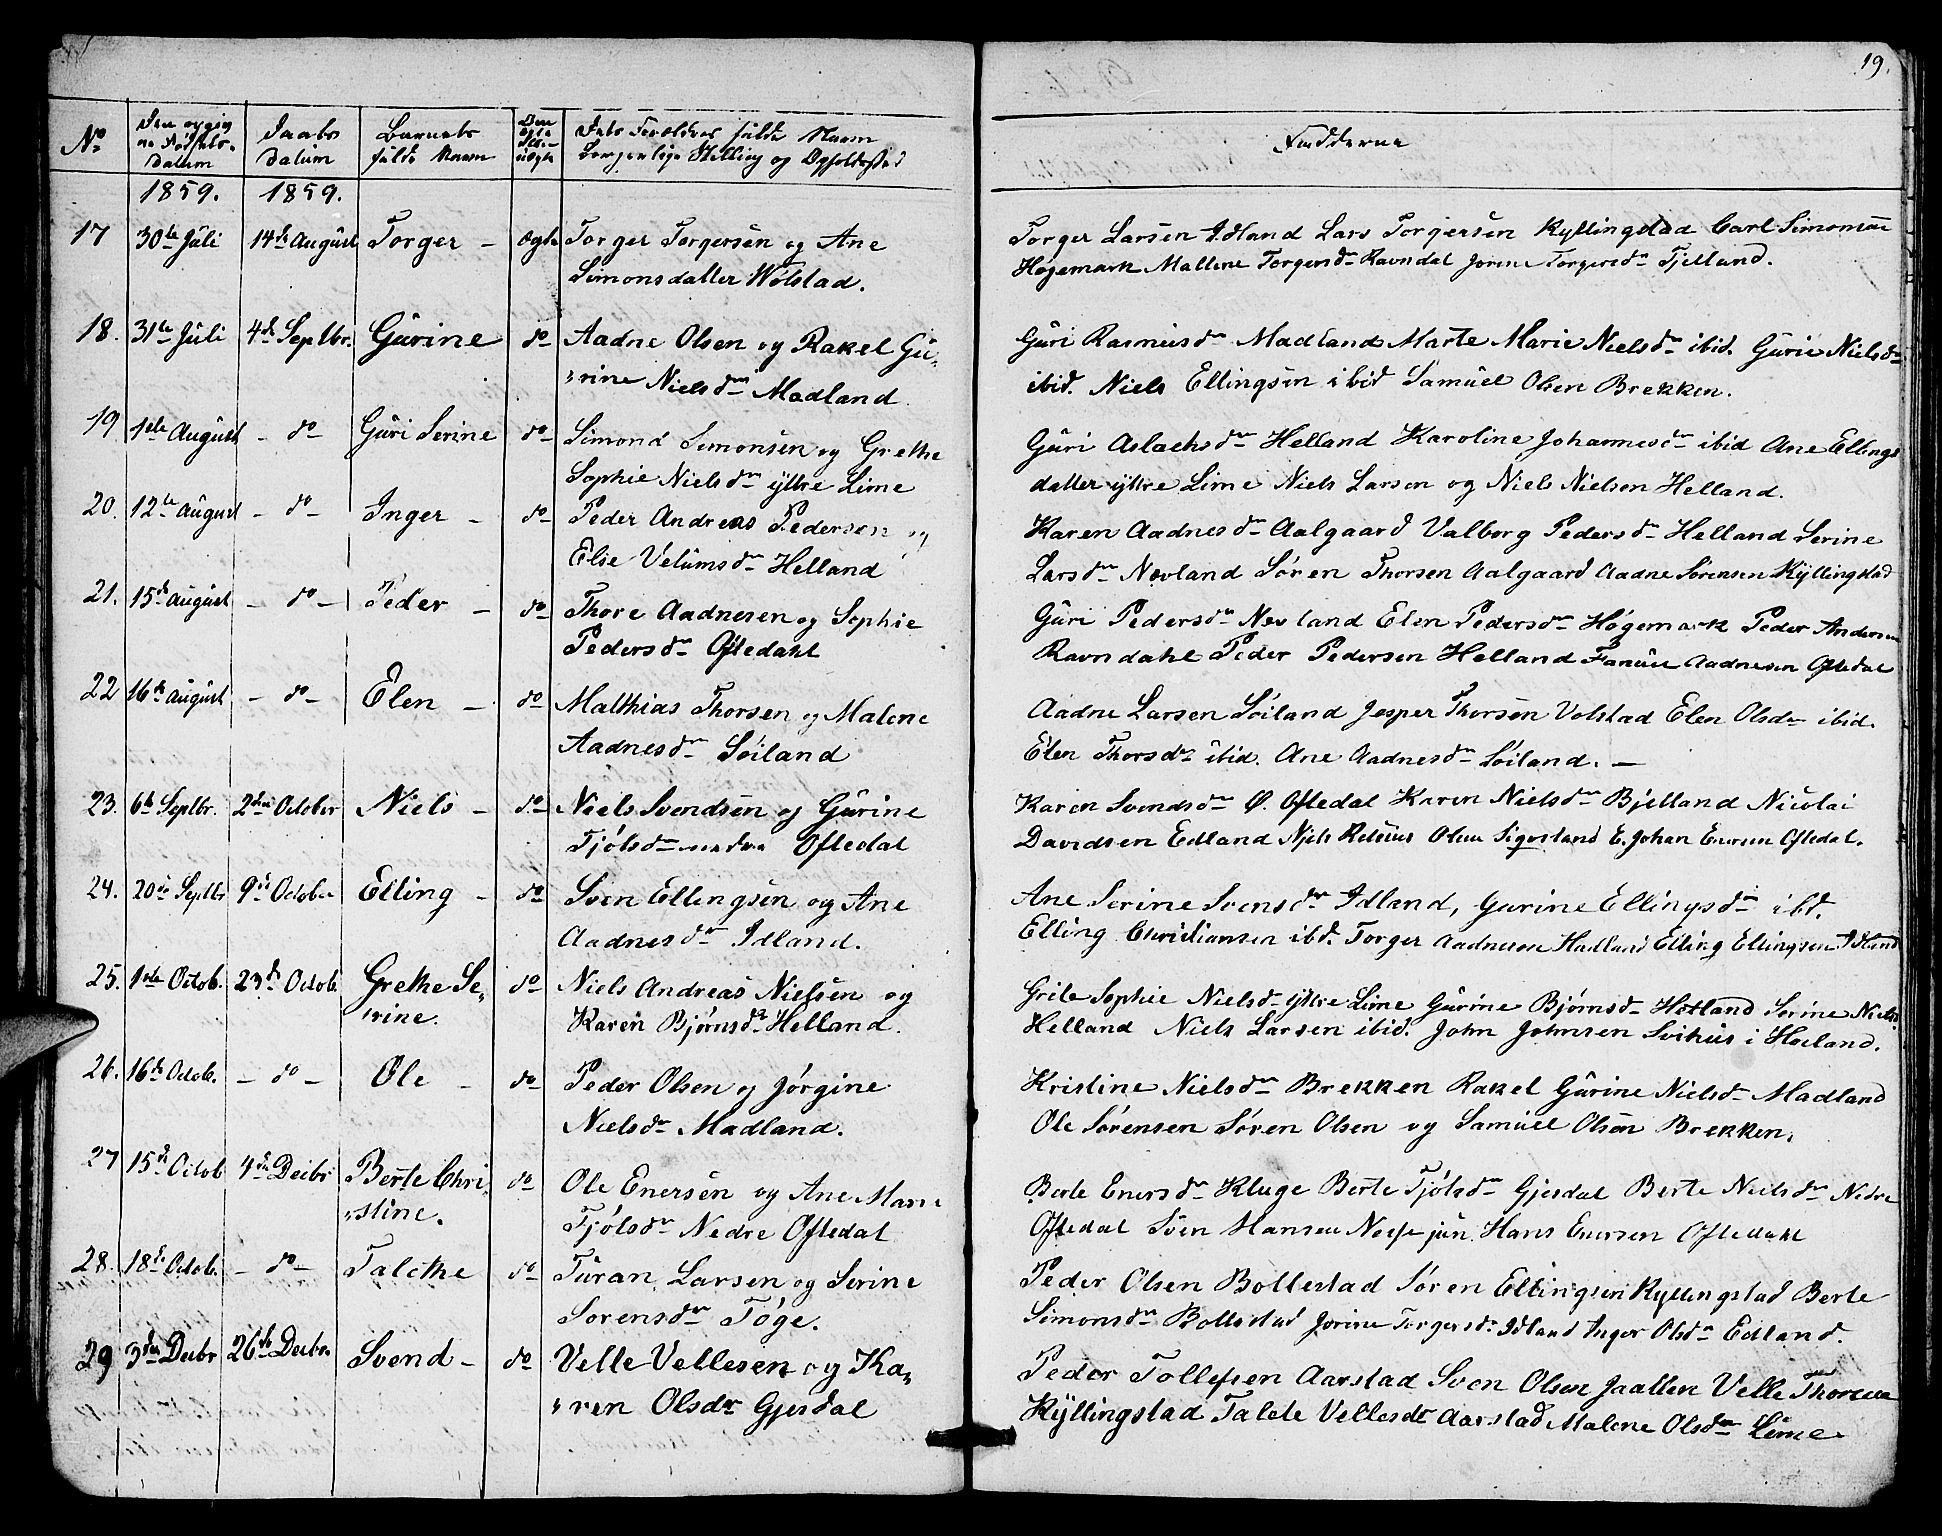 19.
No
Datum
Daabs
Datum
Barnets
fulde Navn
Stilling og Opholdssted
Fadderne
1859. 1859.
17 30te Juli 14de August Torger - Ægte Torger Torgersen og Ane
Simonsdatter Wølstad.
Torger Larsen Idland Lars Torgersen Kyllingstad Carl
Høgemark Mallene Torgersdr Ravndal Torgersdr Fjelland.
18. 31te Juli 4de Septbr. Gurine do Aadne Olsen og Rakel Gu-
rine Nielsdr Madland
Guri Rasmusdr Madland Marte Marie Nielsdr ibid. Gurie Nielsdr
ibid. Niels Ellingsen ibid Samuel Olsen Brekken.
19 1ste August - do - Guri Serine do Simond Simonsen og Grethe
Sophie Nielsdr ytre Lime
Guri Aslachsdr Helland Karoline Johannesdr ibid Ane Ellings
datter ytre Lime Niels Larsen og Niels Nielsen Helland.
20. 12te August - do - Inger - do- Peder Andreas Pedersen og
Elise Velumsdr Helland
Karen Aadnesdr Aalgaard Valborg Pedersdr Helland Serine
Larsdr Nevland Søren Thorsen Aalgaard Aadne Sørensen Kyllingstad
21. 15de August - do - Peder - do- Thore Aadnesen og Sophie
Pedersdr Oftedahl
Guri Pedersdr Nevland Elen Pedersdr Høgemark Peder Andersen
Ravndahl Peder Pedersen Helland Aadnesen Oftedal
22 16de August - do - Elen - do- Mathias Thorsen og Malene
Aadnesdr Søiland
Aadne Larsen Søiland Jesper Thorsen Volstad Elen Olsdr ibid.
Elen Thorsdr ibid. Ane Aadnesdr Søiland. -
23. 6te Septbr. 2den October Niels - do- Niels Svendsen og Gurine
Tjølsdr nedre Oftedal
Karen Svendsdr Ø. Oftedal Karen Nielsdr Bjelland Nicolai
Davidsen Edland Niels Olsen E. Johan Enersen Oftedal.
24. 20de Septbr 9de October Elling - do Sven Ellingsen og Ane
Aadnesdr Idland.
Ane Serine Svensdr Idland, Gurine Ellingsdr ibd.
Elling Christiansen ibd. Torger Aadnesen Madland Elling Ellingsen Idland
25. 1ste Octob. 23de Octob. Grethe Se-
rine. do Niels Andreas Nielsen og
Karen Bjørnsdr Helland.
Grite Sophie Nielsdr ytre Lime Gurine Bjørnsdr Hetland Serine
Helland Niels Larsen ibid. John Johnsen Svihus i Høiland.
26. 16de Octob. - do - Ole - do Peder Olsen og Jørgine
Nielsdr Madland.
Kristine Nielsdr Brekken Rakel Gurine Nielsdr Madland
Ole Sørensen Søren Olsen og Samuel Olsen Brekken.
27 15de Octob 4de Decbr Berte Chri-
stine. do Ole Enersen og Ane Marie
Tjølsdr Nedre Oftedal
Berte Enersdr Kluge Berte Tjølsdr Gjesdal Berte Nielsdr Nedre
Oftedal Sven Hansen Hans Enersen Oftedahl
28. 18de Octob. - do - Talethe do- Turan Larsen og Serine
Sørensdr Tøge.
Peder Olsen Bollestad Søren Ellingsen Kyllingstad Berte
Simonsdr Bollestad Jorine Torgersdr Idland Inger Olsdr Edland.
29 3die Decbr 26de Decbr Svend - do Velle Vellesen og Ka-
ren Olsdr Gjesdal
Peder Tollefsen Aarstad Sven Olsen Velle Thorsen
Kyllingstad Talete Vellesdr Aarstad Malene Olsdr Lime